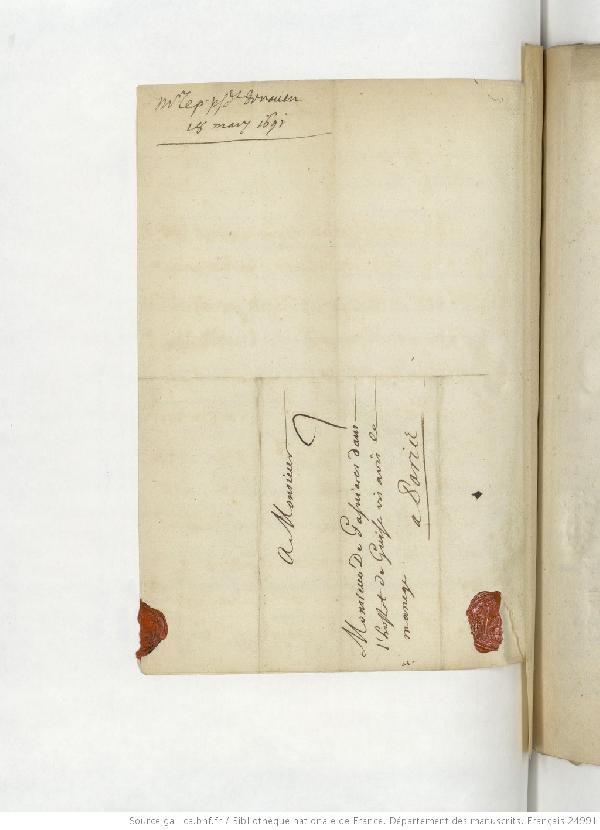 Mr le pr psdt de rouen
18 mars 1691
A Monsieur
Monsieur De Gaignieres dans
l'hostel de Guise vis avis le
manege
a Paris
Source gallica.bnf.fr / Bibliothèque nationale de France. Département des manuscrits. Français 24991